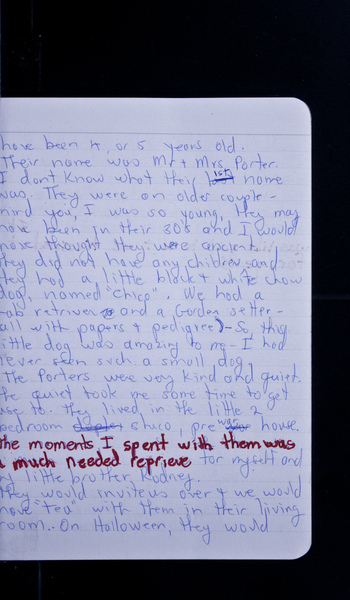 have been 4, or 5 years old.
Their name was Mr + Mrs. Porter.
I dont know what their 1st name
was. They were an older couple -
mind you, I was so young, they may
have been in their 30s and I would
have thought they were ancient.
They did not have any children, and
they had a little black + white chow
dog, named "Chico". We had a
Lab retriver and a Gordon setter -
all with papers + pedigree) - So, this
little dog was amazing to me - I had
never seen such a small dog.
The Porters were very kind and quiet.
The quiet took me some time to get
use to. They lived in the little 2
bedroom stuco, pre war house.
The moments I spent with them was
a much needed reprieve for myself and
my little brother Rodney.
They would invite us over + we would
have "tea" with them in their living
room. On Halloween, they would